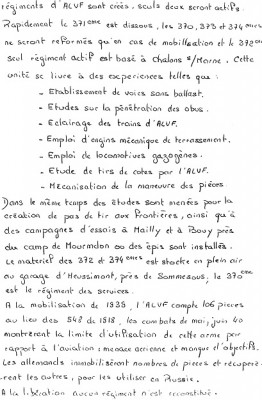 régiments d'ALVF sont créés, seuls deux seront actifs.
Rapidement le 371ème est dissous, les 370, 373 et 374èmes
ne seront reformés qu'en cas de mobilisation et le 372ème
seul régiment actif est basé à Chalons s/Marne. Cette
unité se livre à des expériences telles que :
- Etablissement de voies sans ballast.
- Etudes sur la pénétration des obus.
- Eclairage des trains d'ALVF.
- Emploi d'engins mécanique de terrassement.
- Emploi de locomotives gazogènes.
- Etude de tirs de cotes par l'ALVF.
- Mécanisation de la maneuvre des pièces.
Dans le même temps des études sont menées pour la
création de pas de tir aux frontières, ainsi qu'à
des campagnes d'essais à Mailly et à Bouy près
du camp de Mourmelon ou des épis sont installés.
Le matériel des 372 et 374èmes est stocké en plein air
au garage d'Haussimont, près de Sommesous, le 370ème
est le régiment des services.
A la mobilisation de 1939, l'ALVF compte 106 pièces
au lieu des 548 de 1918, les combats de mai, juin 40
montreront la limite d'utilisation de cette arme par
rapport à l'aviation : menace aérienne et manque d'objectifs.
Les allemands immobiliseront nombres de pièces et récupère-
rent les autres, pour les utiliser en Russie.
A la libération aucun régiment n'est reconstitué.